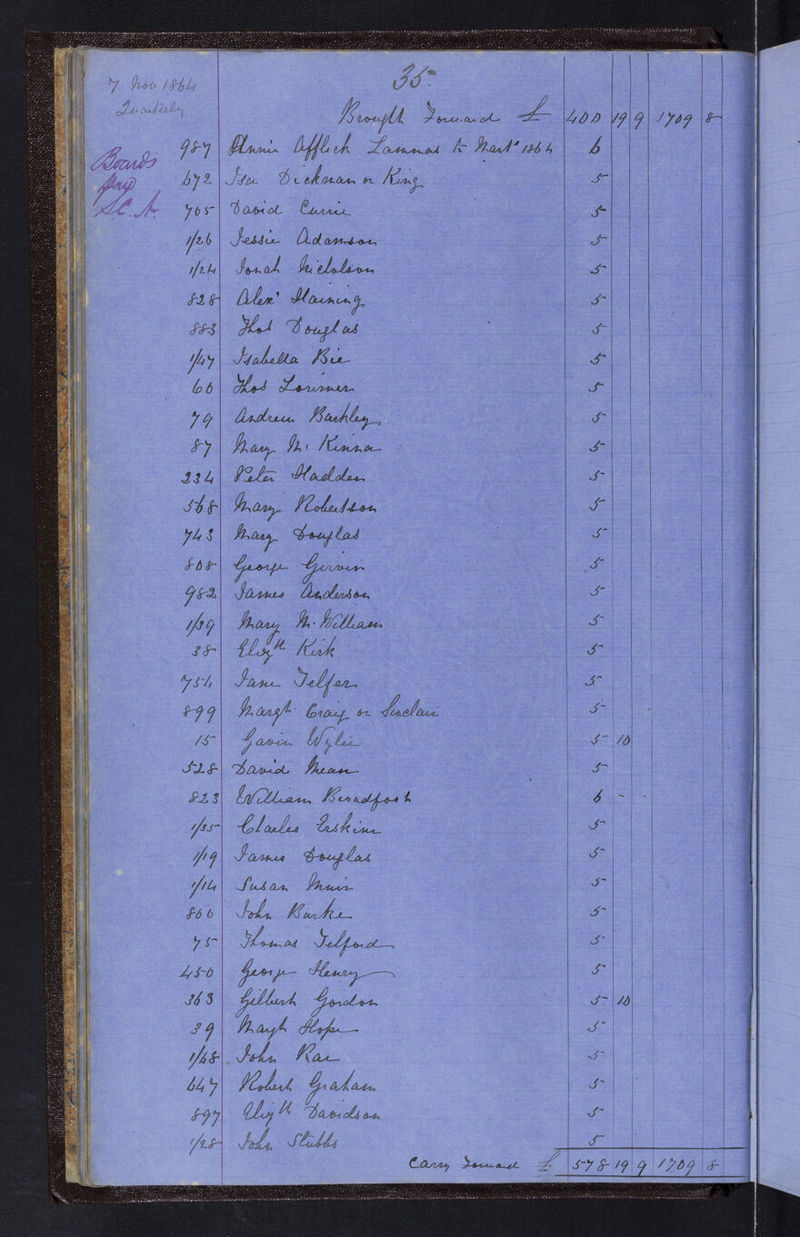 7 Nov 1864
Quarterly
35.
Brought Forward £ 400 19 9 1709 8
Boards
pay
987 Annie Affleck Lammas to Mart.s 1864 6
672 Isa Dickman or King 5
705 David Currie 5
1/26 Jessie Adamson 5
1/24 Jonah Nicholson 5
828 Alexr Haining 5
883 Thos Douglas 5
1/47 Isabella Bie 5
60 Thos Lorimer 5
79 Andrew Barkley 5
87 Mary Mc Kinna 5
234 Peter Hadden 5
568 Mary Robertson 5
743 Mary Douglas 5
808 George Girvin 5
982 James Anderson 5
1/39 Mary Mc William 5
38 Elizth Kirk 5
754 Jane Telfer 5
899 Margt Craig or Sinclair 5
15 Gavin Wylie 5 10
528 David Mean 5
823 William Broadfoot 6 - -
1/35 Charles Erskine 5
1/19 James Douglas 5
1/14 Susan Muir 5
800 John Burke 5
75 Thomas Telford 5
450 George Henry 5
363 Gilbert Gordon 5 10
39 Margt Hope 5
1/48 John Rae 5
647 Robert Graham 5
897 Elizth Davidson 5
1/28 John Stubbs 5
Carry Forward £ 578 19 9 1709 8